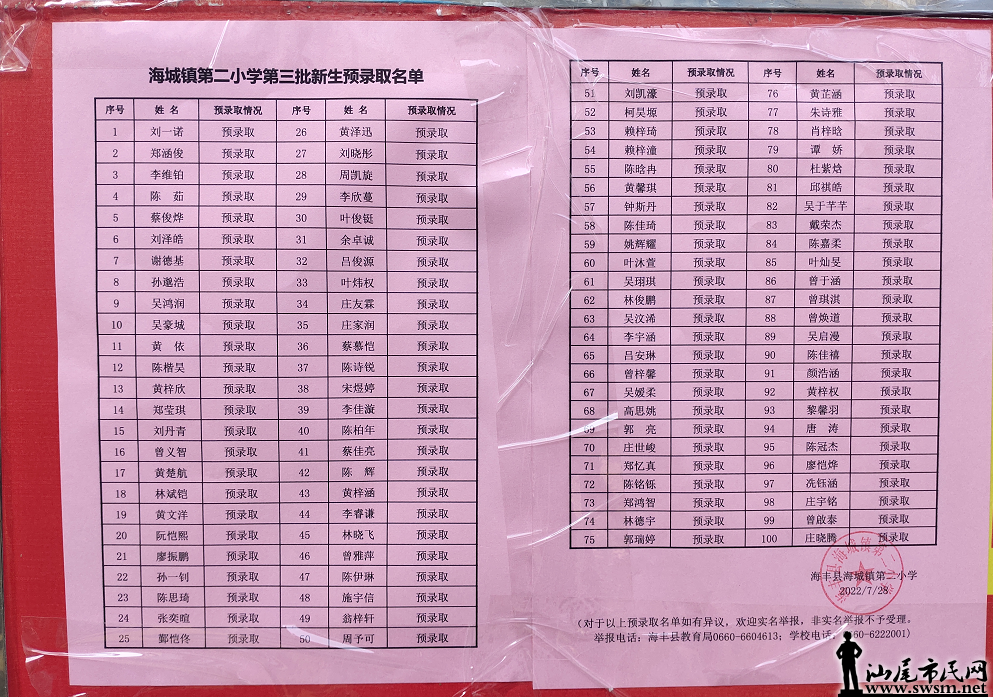 海城镇第二小学第三批新生预录取名单
序号 姓 名 预录取情况 序号 姓 名 预录取情况
1 刘一诺 预录取 26 黄泽迅 预录取
2 郑涵俊 预录取 27 刘晓彤 预录取
3 李维铂 预录取 28 周凯旋 预录取
4 陈 茹 预录取 29 李欣蔓 预录取
5 蔡俊烨 预录取 30 叶俊铤 预录取
6 刘泽皓 预录取 31 余卓诚 预录取
7 谢德基 预录取 32 吕俊源 预录取
8 孙邈浩 预录取 33 叶炜权 预录取
9 吴鸿润 预录取 34 庄友霖 预录取
10 吴豪城 预录取 35 庄家润 预录取
11 黄 依 预录取 36 蔡慕恺 预录取
12 陈楷昊 预录取 37 陈诗锐 预录取
13 黄梓欣 预录取 38 宋煜婷 预录取
14 郑莹琪 预录取 39 李佳漩 预录取
15 刘丹青 预录取 40 陈柏年 预录取
16 曾义智 预录取 41 蔡佳亮 预录取
17 黄楚航 预录取 42 陈 辉 预录取
18 林斌铠 预录取 43 黄梓涵 预录取
19 黄文洋 预录取 44 李睿谦 预录取
20 阮恺熙 预录取 45 林晓飞 预录取
21 廖振鹏 预录取 46 曾雅萍 预录取
22 孙一钊 预录取 47 陈伊琳 预录取
23 陈思琦 预录取 48 施宇信 预录取
24 张奕暄 预录取 49 翁梓轩 预录取
25 鄞恺佟 预录取 50 周予可 预录取
序号 姓名 预录取情况 序号 姓名 预录取情况
51 刘凯濠 预录取 76 黄芷涵 预录取
52 柯昊塬 预录取 77 朱诗雅 预录取
53 赖梓琦 预录取 78 肖梓晗 预录取
54 赖梓潼 预录取 79 谭 娇 预录取
55 陈晗冉 预录取 80 杜紫焓 预录取
56 黄馨琪 预录取 81 邱祺皓 预录取
57 钟斯丹 预录取 82 吴于芊芊 预录取
58 陈佳琦 预录取 83 戴荣杰 预录取
59 姚辉耀 预录取 84 陈嘉柔 预录取
60 叶沐萱 预录取 85 叶灿旻 预录取
61 吴珝琪 预录取 86 曾于涵 预录取
62 林俊鹏 预录取 87 曾琪淇 预录取
63 吴汶浠 预录取 88 曾焕道 预录取
64 李宇涵 预录取 89 吴启漫 预录取
65 吕安琳 预录取 90 陈佳禧 预录取
66 曾梓馨 预录取 91 颜浩涵 预录取
67 吴媛柔 预录取 92 黄梓权 预录取
68 高思姚 预录取 93 黎馨羽 预录取
69 郭 亮 预录取 94 唐 涛 预录取
70 庄世峻 预录取 95 陈冠杰 预录取
71 郑忆真 预录取 96 廖恺烨 预录取
72 陈铭铄 预录取 97 冼钰涵 预录取
73 郑鸿智 预录取 98 庄宇铭 预录取
74 林德宇 预录取 99 曾啟泰 预录取
75 郭瑞婷 预录取 100 庄晓腾 预录取
海丰县海城镇第二小学
2022/7/28
(对于以上预录取名单如有异议，欢迎实名举报，非实名举报不予受理。
举报电话：海丰县教育局0660-6604613；学校电话：0660-6222001)
汕尾市民网
www.swsm.net